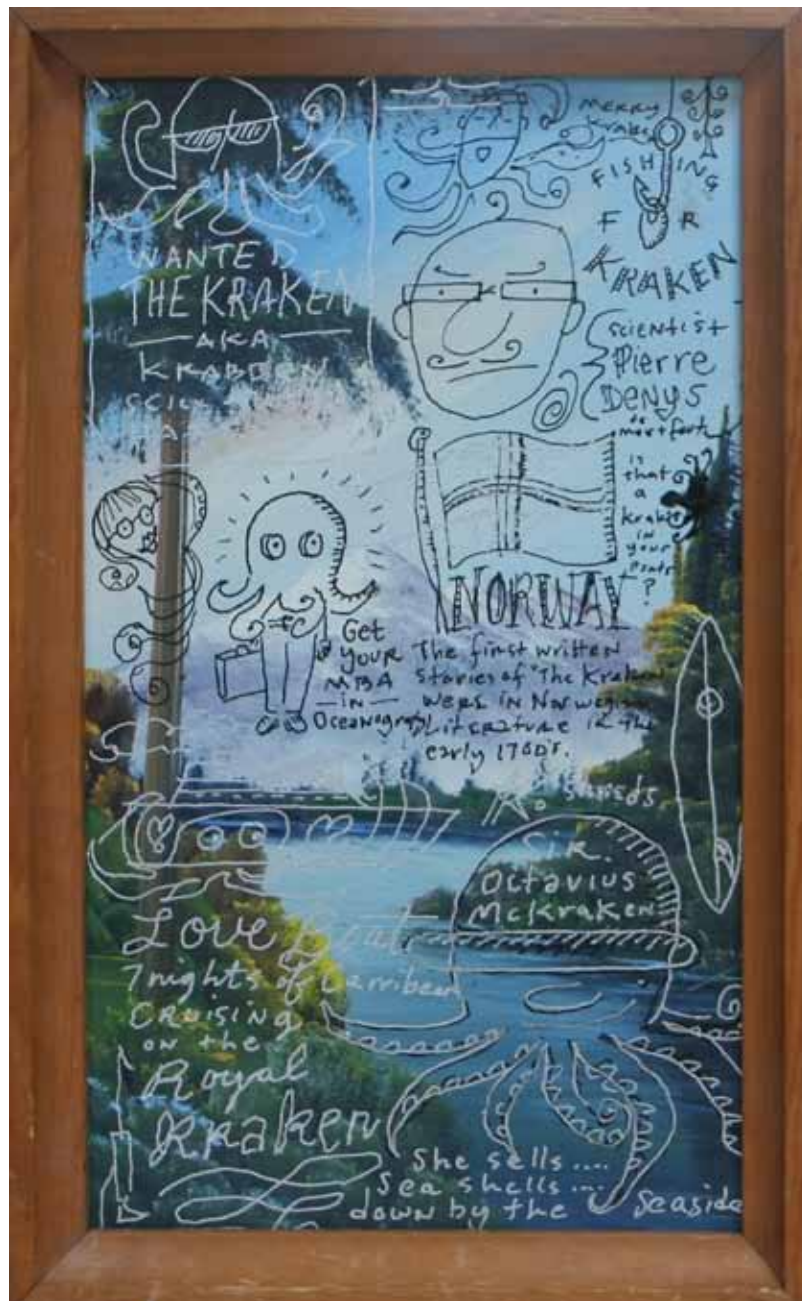 WANTED
THE KRAKEN
AKA
KRABBEN
MERRY
FISHING
F R
KRAKEN
Scientist
Pierre
DENYS
de montfort
is
that
a
kraken
in
your
?
NORWAY
Get
YOUR
MBA
IN
Oceanography
The first written
stories of "The Kraken
were in Norwegian
Literature in the
early 1700's.
Sir.
Octavius
McKraken
Love Boat
7 nights of Carribean
CRUISING
ON the
Royal
Kraken
She sells ....
Sea shells ....
down by the Seaside